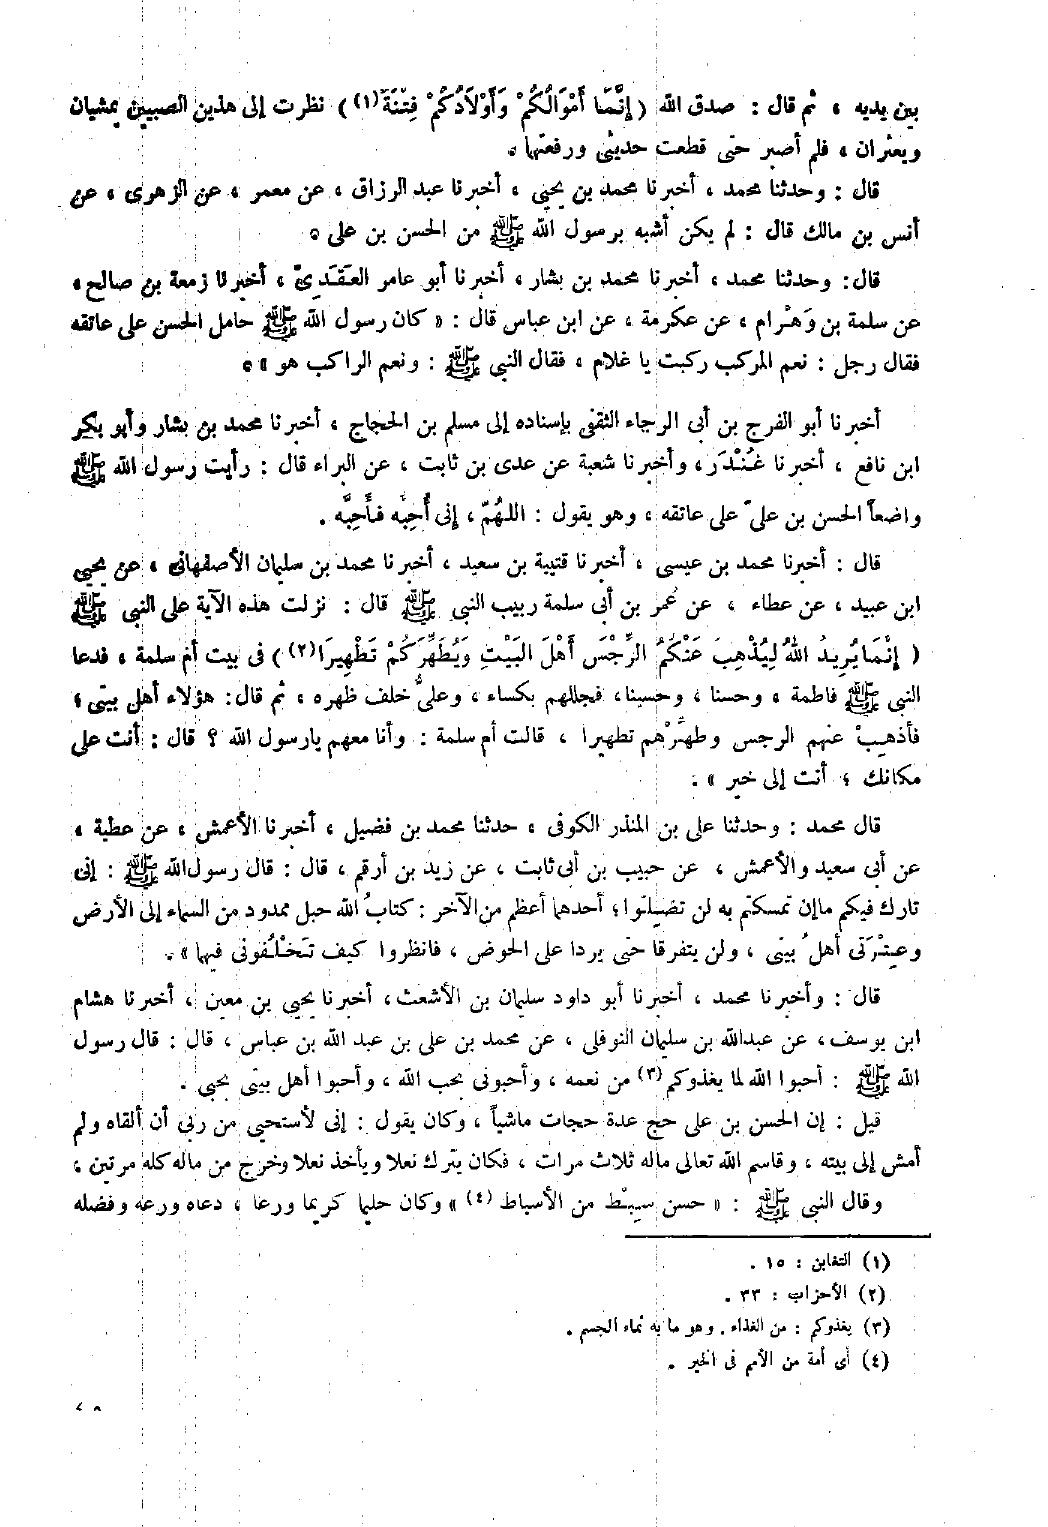 بين يديه ، ثم قال : صدق الله ( إِنَّمَا أَمْوَالُكُمْ وَأَوْلَادُكُمْ فِتْنَةٌ (١) ) نظرت إلى هذين الصبيين يمشيان
ويعثران ، فلم أصبر حتى قطعت حديثى ورفعتهما .
قال : وحدثنا محمد ، أخبرنا محمد بن يحيى ، أخبرنا عبد الرزاق ، عن معمر ، عن الزهرى ، عن
أنس بن مالك قال : لم يكن أشبه برسول الله ﷺ من الحسن بن على .
قال : وحدثنا محمد ، أخبرنا محمد بن بشار ، أخبرنا أبو عامر العَقَدِىّ ، أخبرنا زمعة بن صالح ،
عن سلمة بن وَهْرام ، عن عكرمة ، عن ابن عباس قال : « كان رسول الله ﷺ حامل الحسن على عاتقه
فقال رجل : نعم المركب ركبت يا غلام ، فقال النبى ﷺ : ونعم الراكب هو » .
أخبرنا أبو الفرج بن أبى الرجاء الثقفى بإسناده إلى مسلم بن الحجاج ، أخبرنا محمد بن بشار وأبو بكر
ابن نافع ، أخبرنا غُنْدَر ، وأخبرنا شعبة عن عدى بن ثابت ، عن البراء قال : رأيت رسول الله ﷺ
واضعاً الحسن بن علىّ على عاتقه ، وهو يقول : اللهُمّ ، إنى أُحِبُّه فأَحِبَّه .
قال : أخبرنا محمد بن عيسى ، أخبرنا قتيبة بن سعيد ، أخبرنا محمد بن سليمان الأصفهانى ، عن يحيى
ابن عبيد ، عن عطاء ، عن عُمر بن أبى سلمة ربيب النبى ﷺ قال : نزلت هذه الآية على النبى ﷺ
( إِنَّمَا يُرِيدُ اللهُ لِيُذْهِبَ عَنْكُمُ الرِّجْسَ أَهْلَ البَيْتِ وَيُطَهِّرَكُمْ تَطْهِيرَا (٢) ) فى بيت أم سلمة ، فدعا
النبى ﷺ فاطمة ، وحسنا ، وحسينا ، فجللهم بكساء ، وعلىٌّ خلف ظهره ، ثم قال : هؤلاء أهل بيتى ؛
فأذهِبْ عنهم الرجس وطهِّرْهم تطهيرا ، قالت أم سلمة : وأنا معهم يارسول الله ؟ قال : أنت على
مكانك ؛ أنت إلى خير » .
قال محمد : وحدثنا على بن المنذر الكوفى ، حدثنا محمد بن فضيل ، أخبرنا الأعمش ، عن عطية ،
عن أبى سعيد والأعمش ، عن حبيب بن أبى ثابت ، عن زيد بن أرقم ، قال : قال رسول الله ﷺ : إنى
تارك فيكم ما إن تمسكتم به لن تضلوا ؛ أحدهما أعظم من الآخر : كتابُ الله حبل ممدود من السماء إلى الأرض
وعِتْرَتى أهلُ بيتى ، ولن يتفرقا حتى يردا على الحوض ، فانظروا كيف تَخْلُفُونى فيهما » .
قال : وأخبرنا محمد ، أخبرنا أبو داود سليمان بن الأشعث ، أخبرنا يحيى بن معين ، أخبرنا هشام
ابن يوسف ، عن عبدالله بن سليمان النوفلى ، عن محمد بن على بن عبد الله بن عباس ، قال : قال رسول
الله ﷺ : أحبوا الله لما يغذوكم (٣) من نعمه ، وأحبونى بحب الله ، وأحبوا أهل بيتى بحبى .
قيل : إن الحسن بن على حج عدة حجات ماشياً ، وكان يقول : إنى لأستحيى من ربى أن ألقاه ولم
أمش إلى بيته ، وقاسم الله تعالى ماله ثلاث مرات ، فكان يترك نعلا ويأخذ نعلا وخرج من ماله كله مرتين ،
وقال النبى ﷺ : « حسن سِبْط من الأسباط (٤) » وكان حليما كريما ورعا ، دعاه ورعه وفضله
(١) التغابن : ١٥ .
(٢) الأحزاب : ٣٣ .
(٣) يغذوكم : من الغذاء . وهو ما به نماء الجسم .
(٤) أى أمة من الأمم فى الخير .